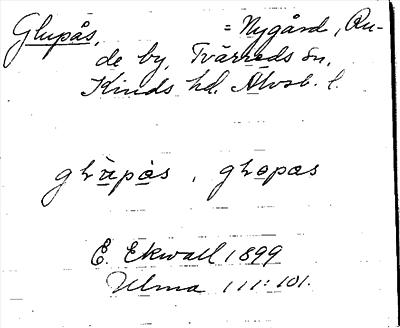 Glupås, = Nygård, Ru-
de by, Tvärreds sn,
Kinds hd. Älvsb. l.
gLùpås, gLopas
E. Ekwall 1899
Ulma 111:101.